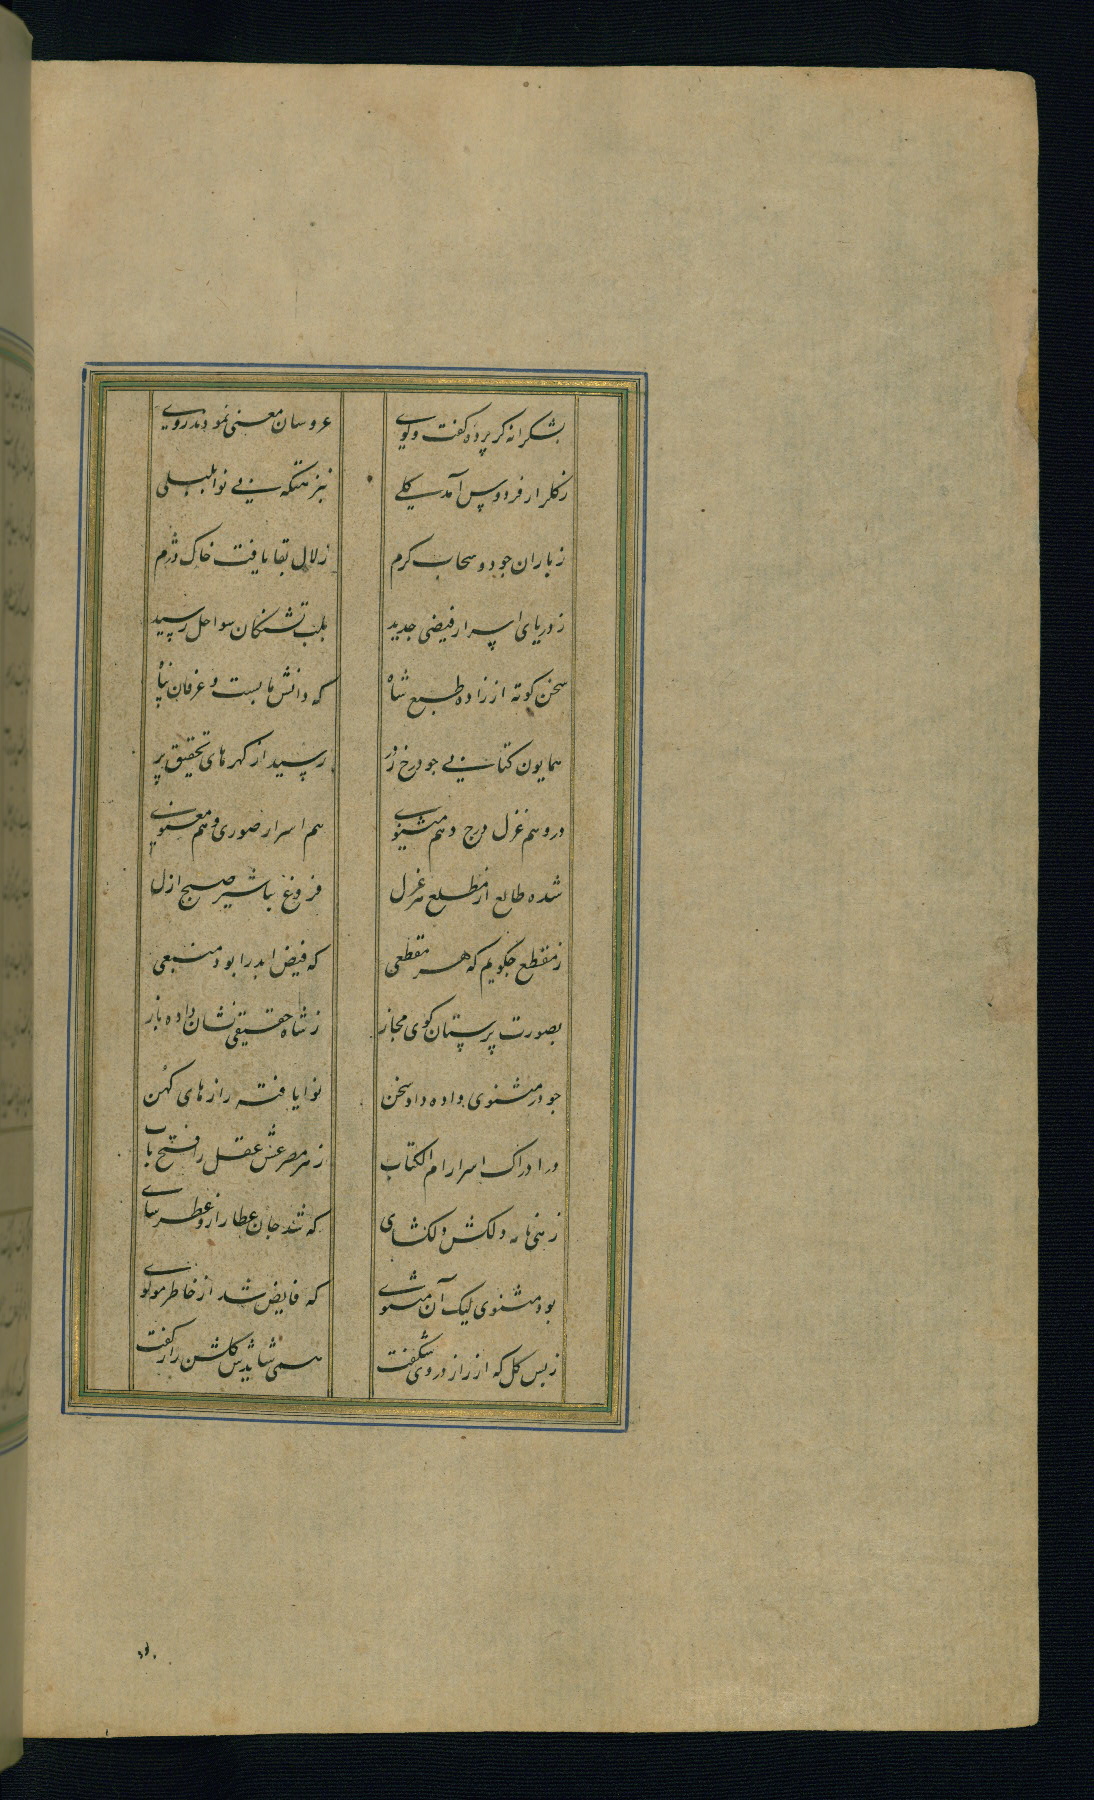 بشکرانه کز پرده گفت وکوی عروسان معنی نمودند روی
ز گلزار فردوس آمد کلی بنزهتگه بی نوا بلبلی
ز باران جود و سحاب کرم زلال بقا یافت خاک دژم
ز دریای اسرار فیضی جدید بلب تشنگان سواحل رسید
سخن کوته از زاده طبع شاه که دانش مابست و عرفان پناه
همایون کتابی چو درج درر رسید از کهرهای تحقیق پر
درو هم غزل درج و هم مثنوی هم اسرار صوری و هم معنوی
شده طالع از مطلع هر غزل فروغ تباشیر صبح ازل
ز مقطع چکویم که هر مقطعی که فیض ابد را بود منبعی
بصورت پرستان کوی مجاز ز شاه حقیقی نشان داده باز
چو در مثنوی داده داد سخن نوا یافته رازهای کهن
در ادراک اسرار ام الکتاب ز هر مصرعش عقل را فتح باب
زهی نامه دلکش دلکشای که شد جان عطار ازو عطرسای
بود مثنوی لیک آن مثنوی که فایض شد از خاطر مولوی
ز بس کل که از راز در وی شکفت همی شایدش کلشن راز کفت